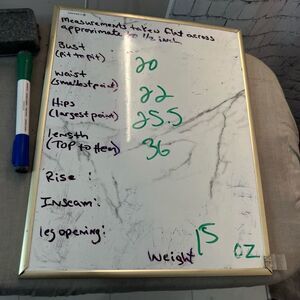 Measurements taken flat across
approximate to 1/2 inch
Bust
(Pit to pit): 20
Waist
(smallest point) 22
Hips
(largest point) 25.5
length
(TOP to Hem) 36
Rise :
Inseam:
leg opening:
Weight 15 OZ